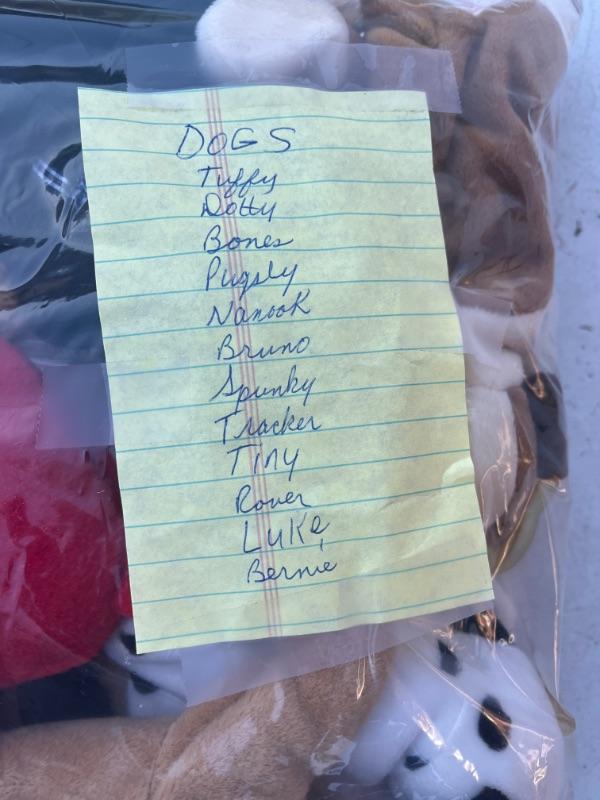 DOGS
Tuffy
Dotty
Bones
Pugsly
Nanook
Bruno
Spunky
Tracker
Tiny
Rover
Luke
Bernie